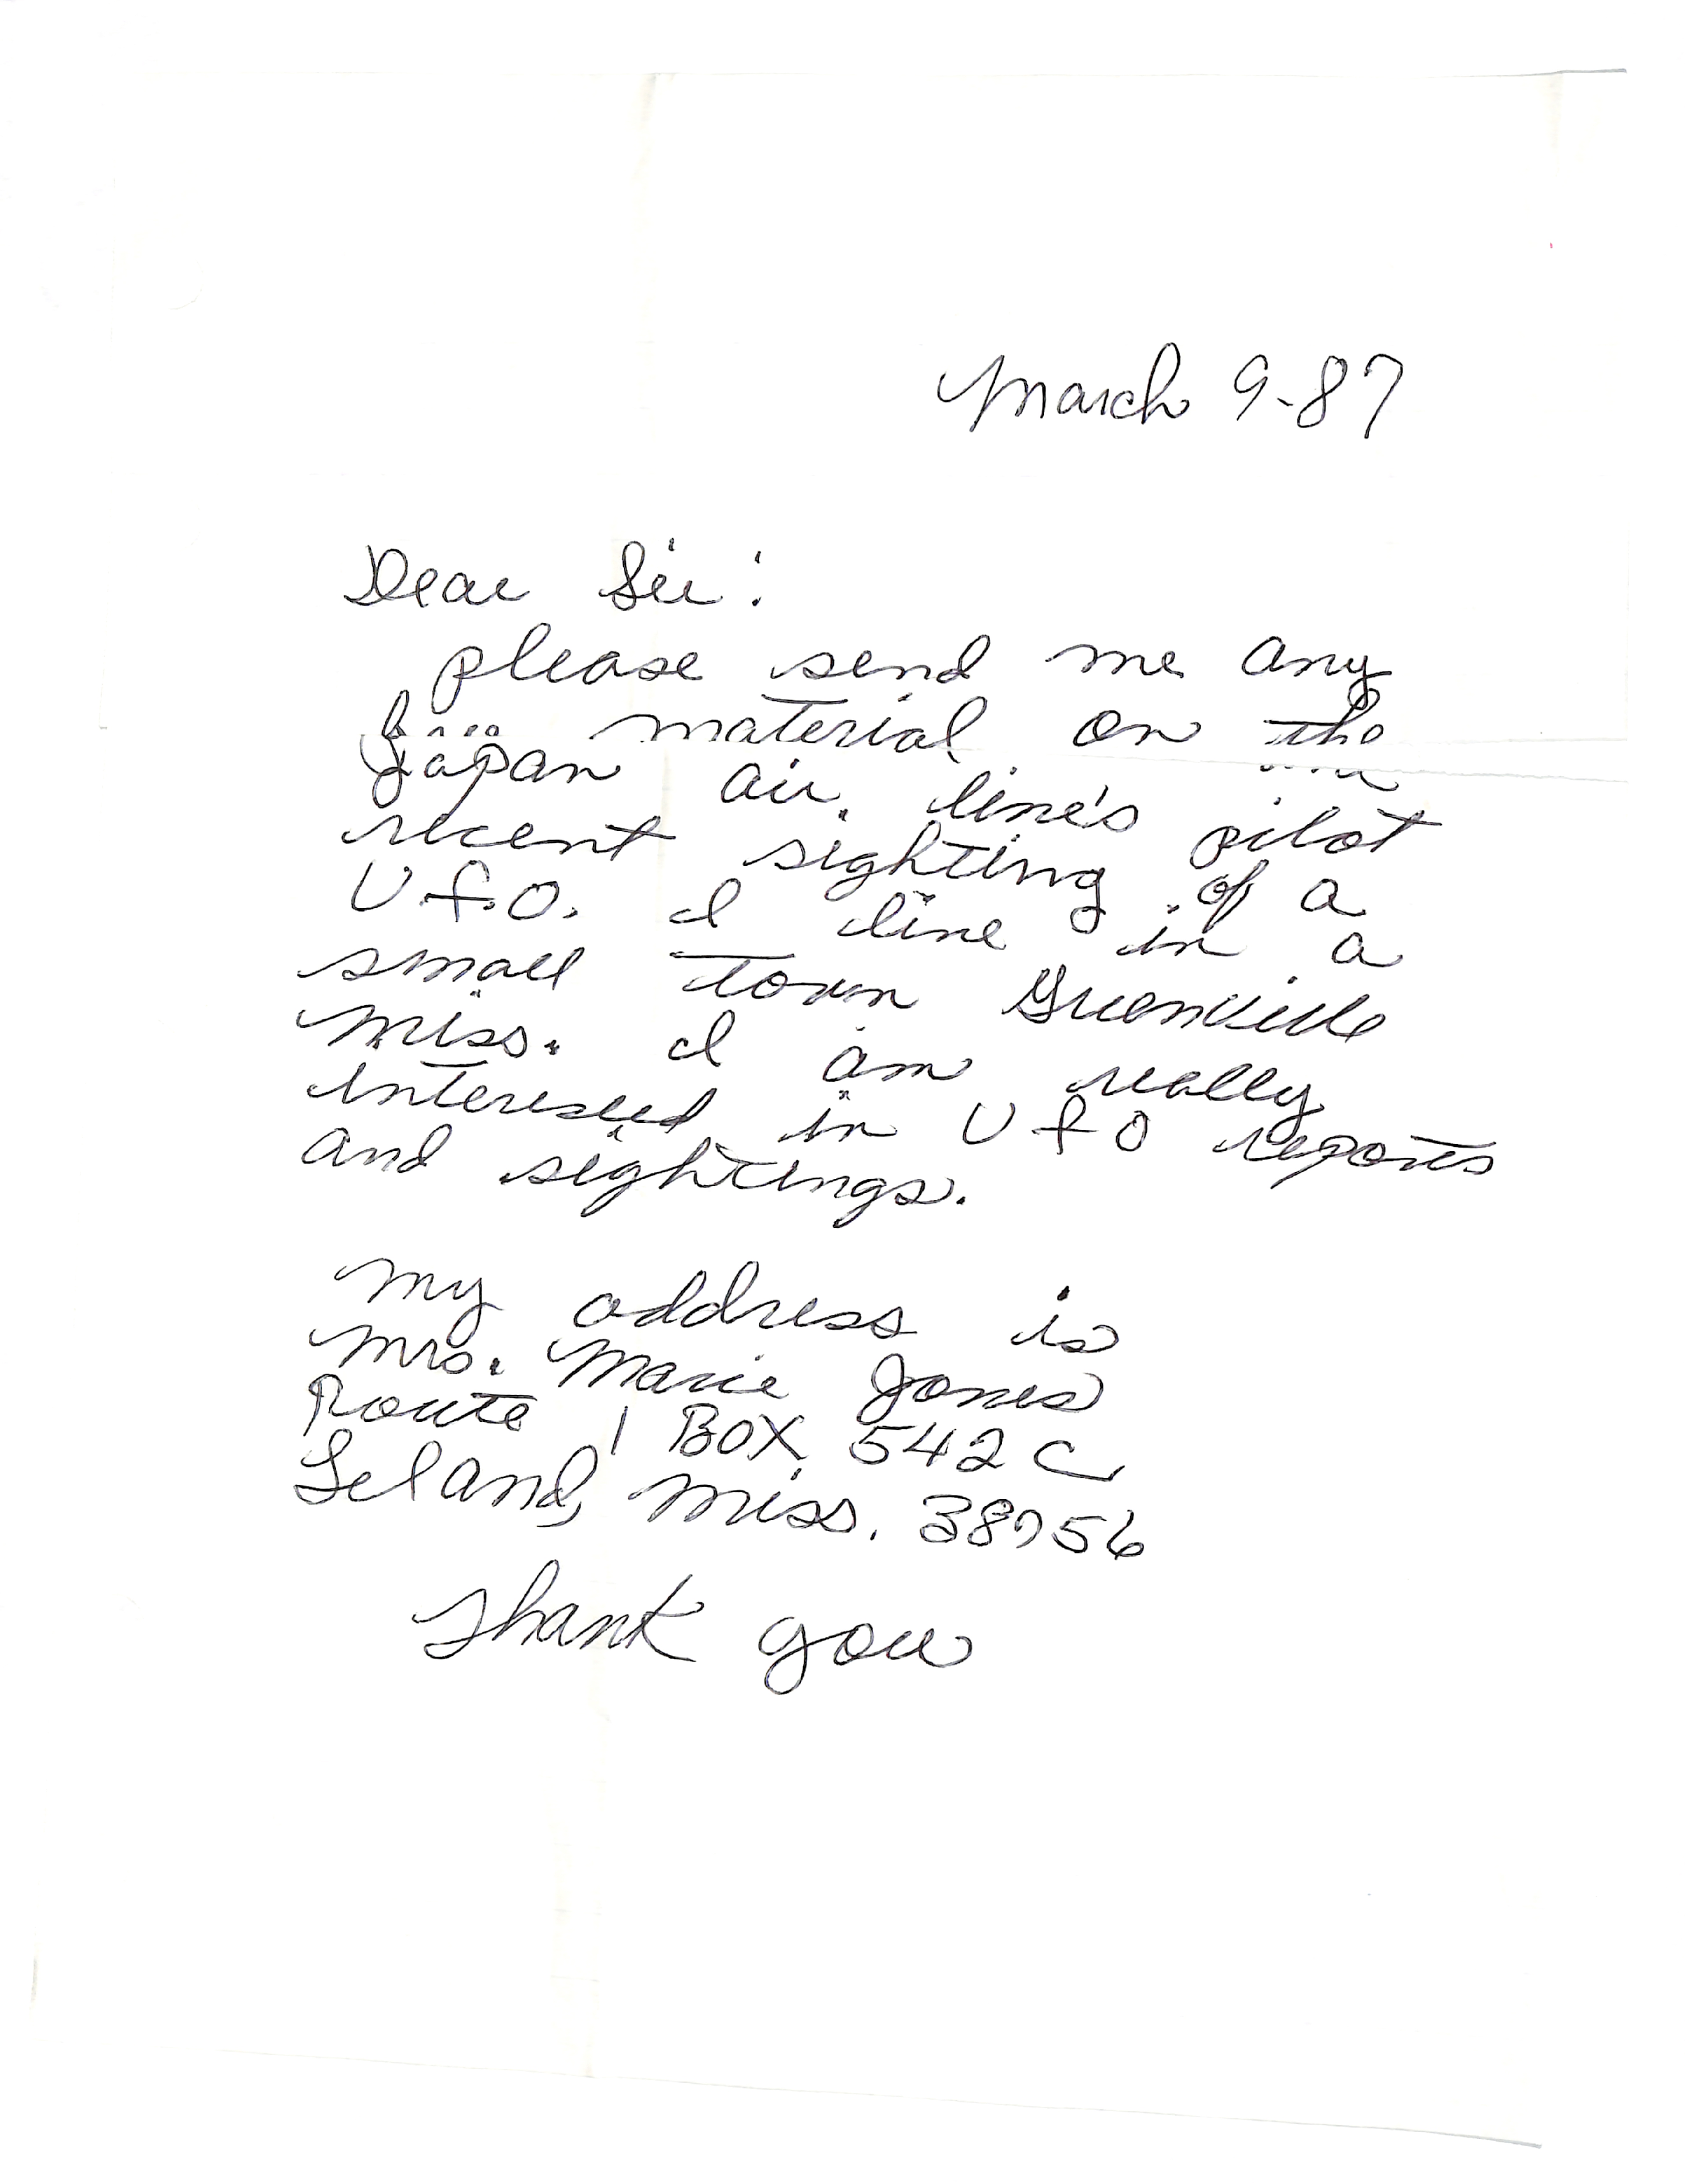 March 9-87
Dear Sir:
please send me any
material on the
Japan air line's pilot
recent sighting of a
U.f.O. I live in a
small town Greenville
Miss. I am really
interested in U f O reports
and sightings.
My address is
Mrs. Marie Jones
Route 1 BOX 542 C
Leland, Miss. 38756
Thank you